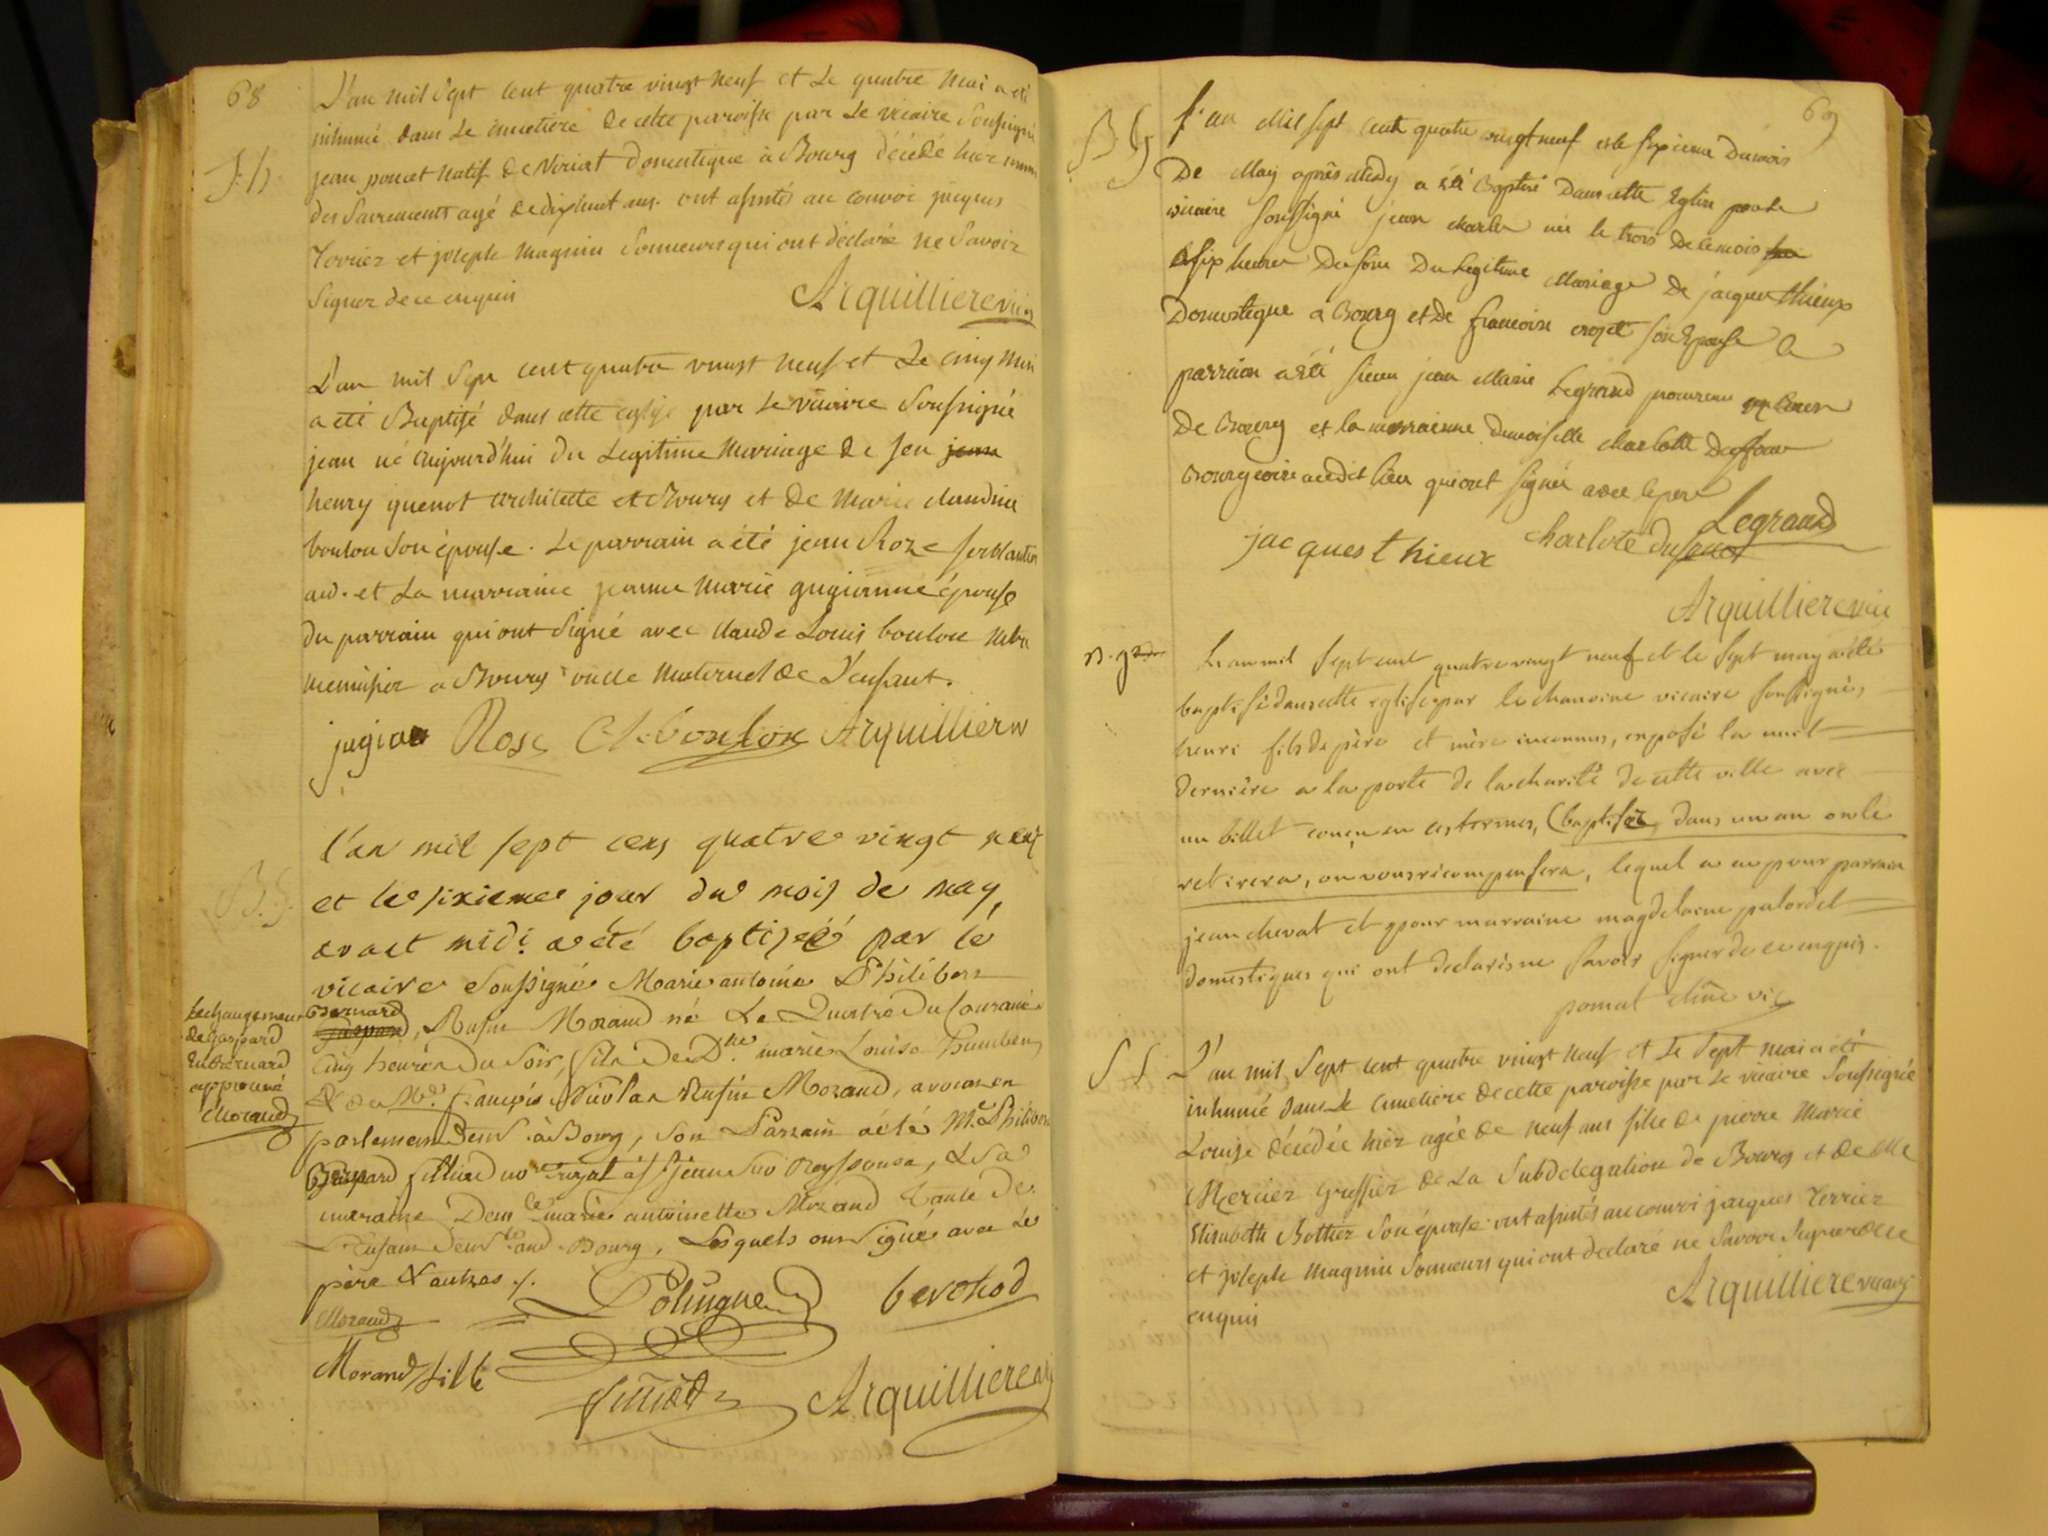 68
L'an mil sept cent quatre vingt neuf et le quatre mai a été
inhumé dans le cimetiere de cette paroisse par le vicaire soussigné
S.G
jean poncet natif de Viriat domestique à Bourg décédé hier muni
des sacrements agé de dixhuit ans. ont assistés au convoi jacques
Terrier et joseph magnin sonneurs qui ont déclaré ne savoir
signer de ce enquis
Arquilliere vic
L'an mil sept cent quatre vingt neuf et le cinq mai
a été Baptisé dans cette eglise par le vicaire soussigné
jean né aujourd'hui du legitime mariage de feu jean
henry quenot architecte et Bourg et de marie claudine
boulon son épouse. Le parrain a été jean Roze ferblantier
aud. et la marraine jeanne marie épouse
du parrain qui ont signé avec claude Louis boulon
menuisier a Bourg oncle maternel de L'enfant.
Rose C. L. boulon Arquilliere
l'an mil sept cens quatre vingt neuf
B.G.
et le sixieme jour du mois de may,
avant midi a été baptizé par le
vicaire soussigné Marie antoine Philibert
Le changement
de Gaspard
en Bernard
approuvé
Morand
Bernard
gaspard, Rufin Morand né Le Quatre du Courant
cinq heures du soir, fils De D.lle marie Louise humbert
& de M.r françois Nicolas Rufin Morand, avocat en
parlement deml. à Bourg, son Parrain a été M.e Philibert
Gaspard no.re royal à St jean sur Reyssouze, & Sa
maraine Dem.lle marie antoinette Morand Tante de
L'Enfant deml. aud. Bourg, Lesquels ont signés avec Le
père & autres ./.
Morand
Dolingue berchod
Morand fille
Arquilliere
69
B.G
L'an Mil sept cent quatre vingt neuf et le sixieme du mois
De May après Midy a été Baptisé Dans cette Eglise par le
vicaire soussigné jean charle né le trois de ce mois
à six heures Du soir Du Legitime Mariage De jacques thieux
Domestique à Bourg et De francoise son Epouse le
parrain a été sieur jean Marie Legrand procureur
De Bourg et la marrainne Demoiselle charlotte Dufour
Bourgeoise audit lieu qui ont signé avec le pere
Legrand
jacques thieux charlote dufour
Arquilliere vic
B. g
L'an mil sept cent quatre vingt neuf et le sept may a été
baptisé dans cette eglise par le chanoine vicaire soussigné,
henri fils de père et mère inconnus, exposé la nuit
dernière a la porte de la charité de cette ville avec
un billet conçu en ces termes, (baptisé, dans un an on le
retirera, on vous récompensera, lequel a eu pour parrain
jean chevat et pour marraine magdelaine palordet
domestiques qui ont declarés ne savoir signer de ce enquis.
pomat chne vic
S f.
L'an mil sept cent quatre vingt neuf et le sept mai a été
inhumé dans le cimetiere de cette paroisse par le vicaire soussigné
Louise décédée hier agée de neuf ans fille de pierre Marie
Mercier greffier de la subdelegation de Bourg et de
Elisabeth Bottier son épouse. ont assistés au convoi jacques Terrier
et joseph magnin sonneurs qui ont declaré ne savoir signer de ce
enquis
Arquilliere vicaire